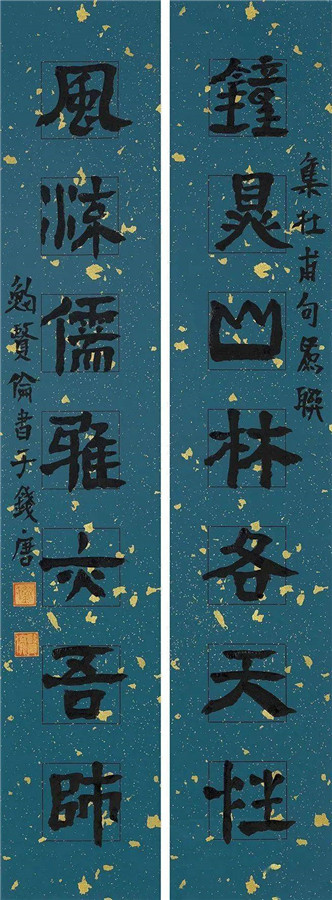 集杜甫句為聯
鐘鼎山林各天性
風流儒雅亦吾師
鮑賢倫書于錢唐